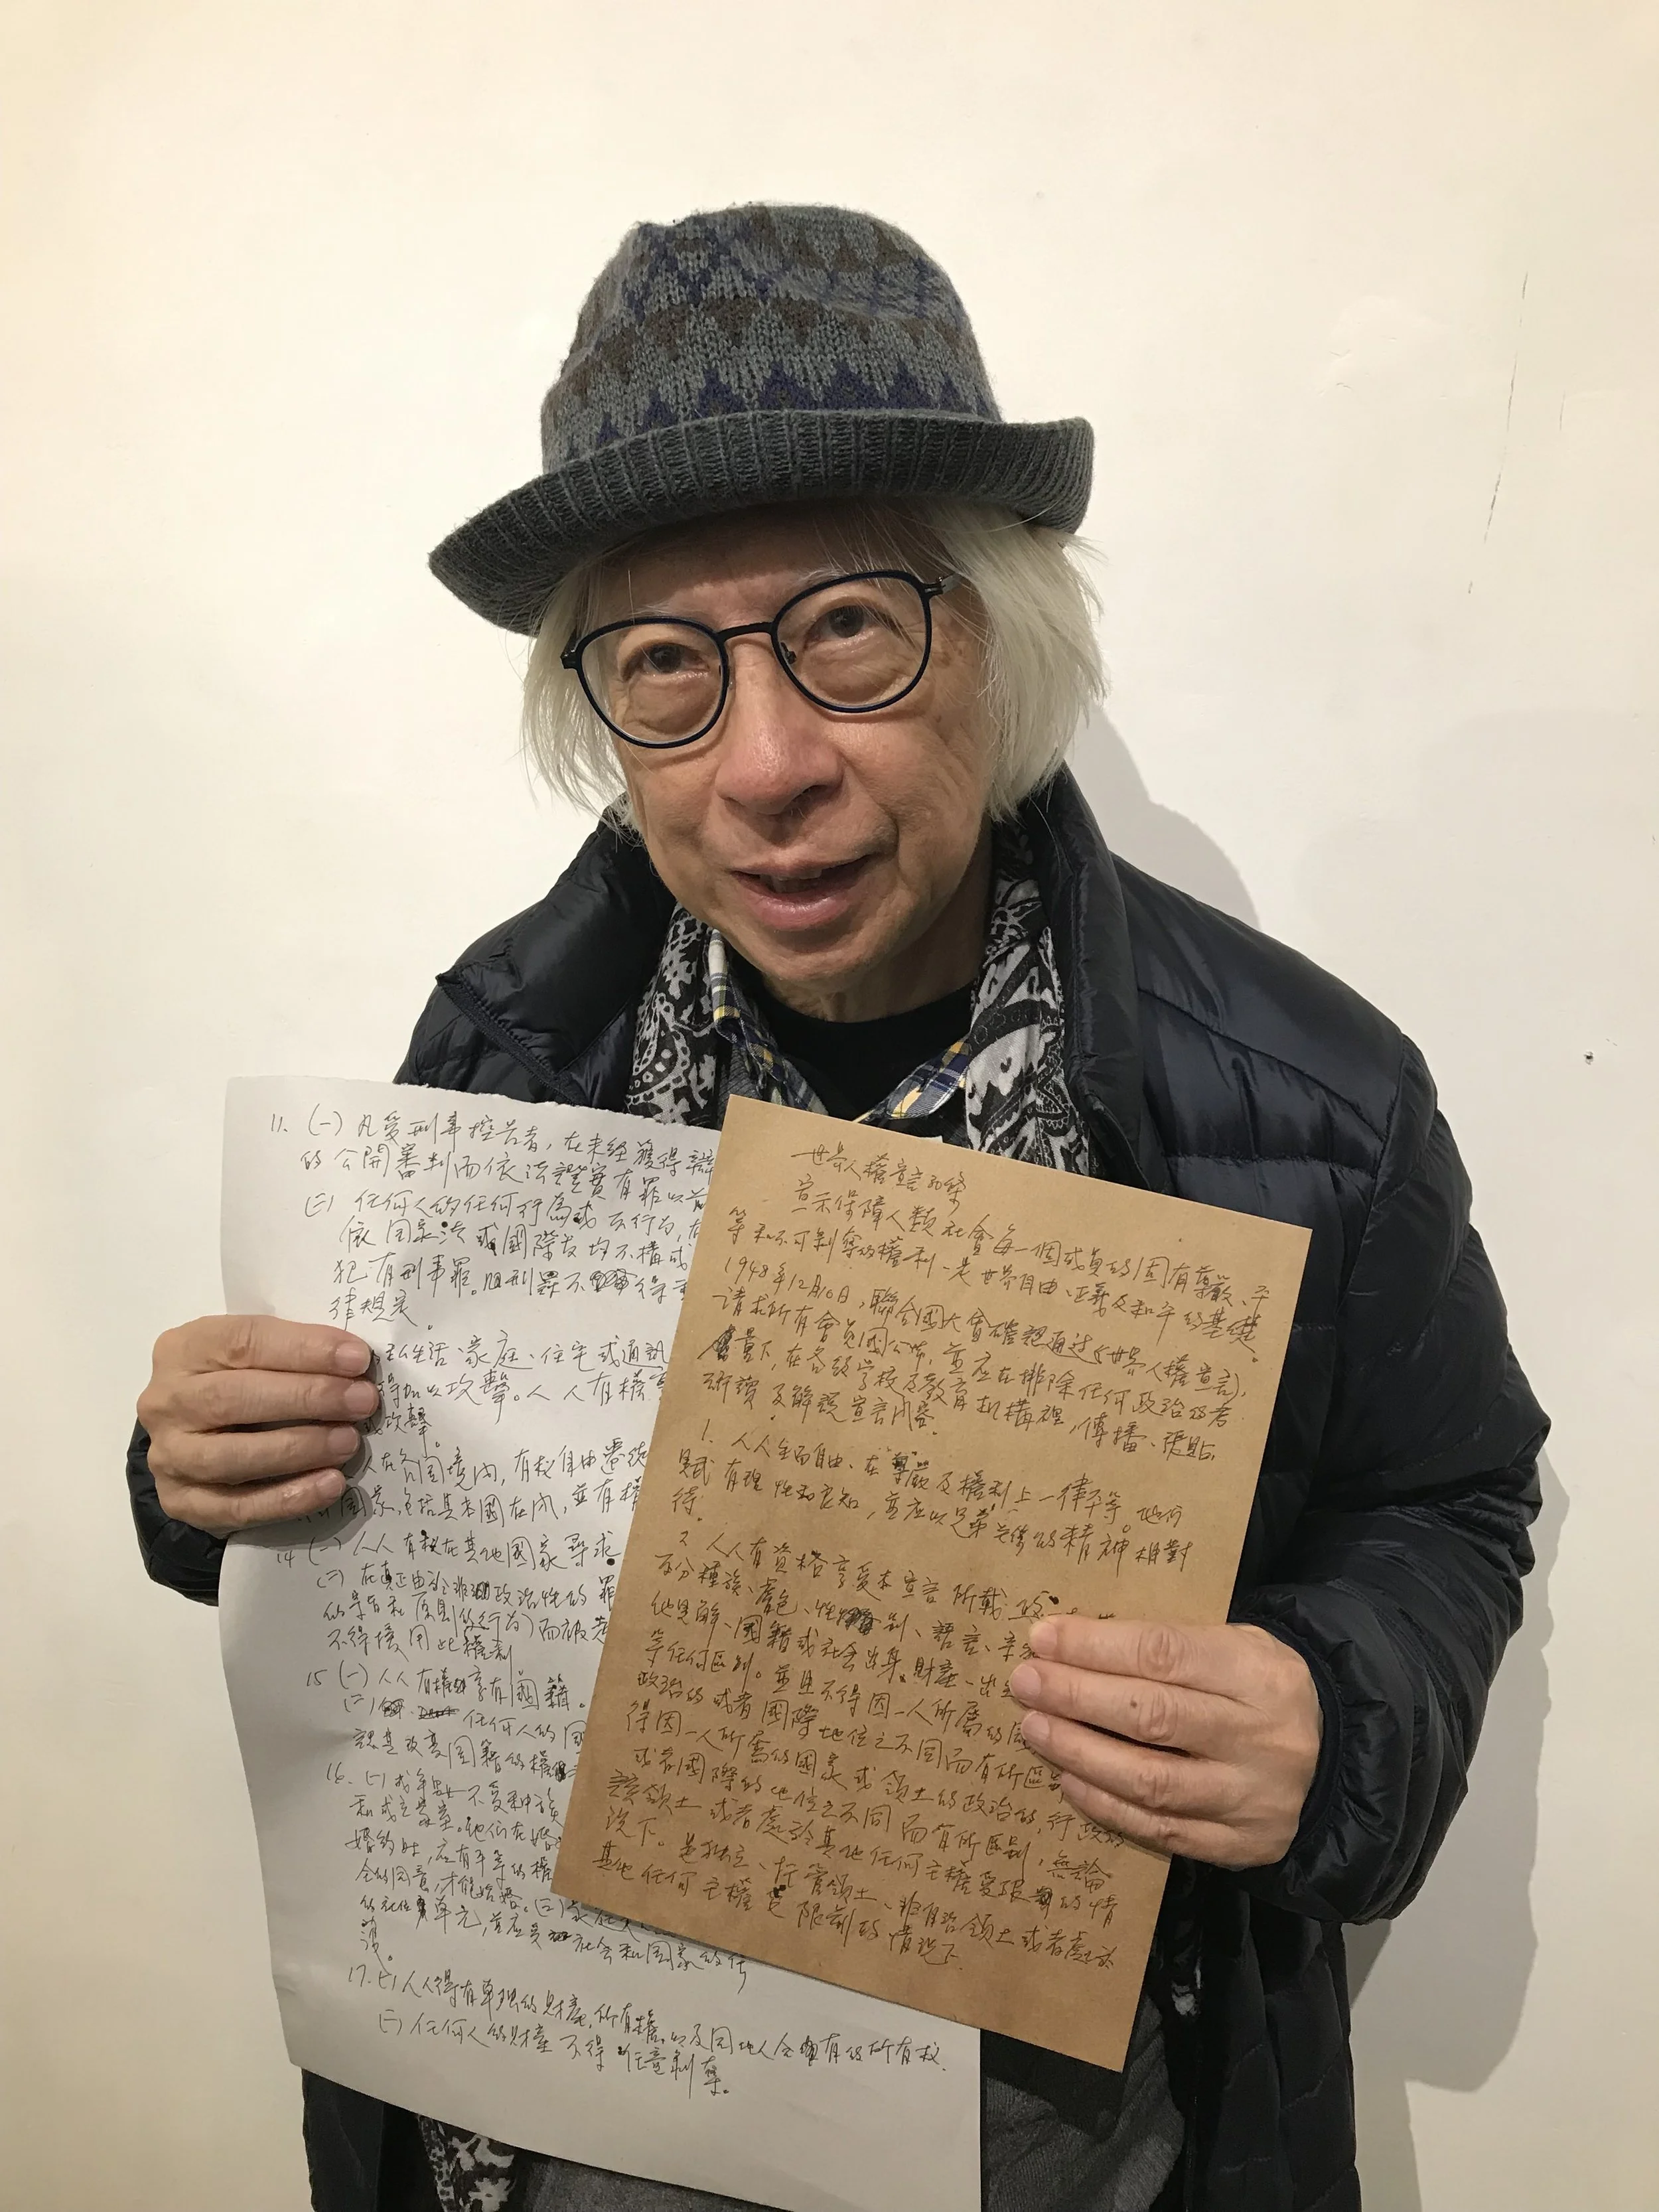 11. (一) 凡受刑事控告者,在未經獲得
的公開審判而依法證實有罪以前
(二) 任何人的任何行為或不行為,在
依國家法或國際法均不構成
犯有刑事罪。刑罪不得
律規定。
私生活、家庭、住宅或通訊
得加以攻擊。人人有權
或攻擊。
人在各国境內,有权自由遷徙
国家,包括其本國在內,並有權
14 (一) 人人有权在其他國家尋求
(二) 在真正由於非政治性的罪
的宗旨和原則的行为)而被
不得援用此權利
15 (一) 人人有權享有國籍。
(二) 任何人的国
認其改變国籍的權
16. (一) 成年男女不受种族
和成立家室。他们在婚
婚约时,应有平等的權
全的同意,才能結婚。(二)
的社任單元,並应受社会和国家的保
護。
17. (一) 人人得有單獨的財產所有權,以及同他人合有的所有权.
(二) 任何人的財產不得任意剝奪。
世界人權宣言30條
宣示保障人類社會每一個成員的固有尊嚴、平
等和不可剝奪的權利,是世界自由、正義及和平的基礎。
1948年12月10日,聯合國大會確認通過《世界人權宣言》,
請求所有會員國公佈,並应在排除任何政治的考
量下,在各級学校及教育机構裡,傳播、張貼、
研讀及解說宣言內容。
1. 人人生而自由、在尊嚴及權利上一律平等。他们
賦有理性和良知,並应以兄弟关係的精神相對
待。
2 人人有資格享受本宣言所載
不分種族、膚色、性別、語言、
他見解、國籍或社会出身、財產、出生
等任何區別。並且不得因一人所屬的國
政治的或者國際地位之不同而有所區別
得因一人所屬的國家或領土的政治的,行政的
或者國際的地位之不同而有所區別,無論
該領土或者處於其他任何主權受限的情
況下。是独立、托管領土、非自治領土或者處於
其他任何主權受限制的情況下.